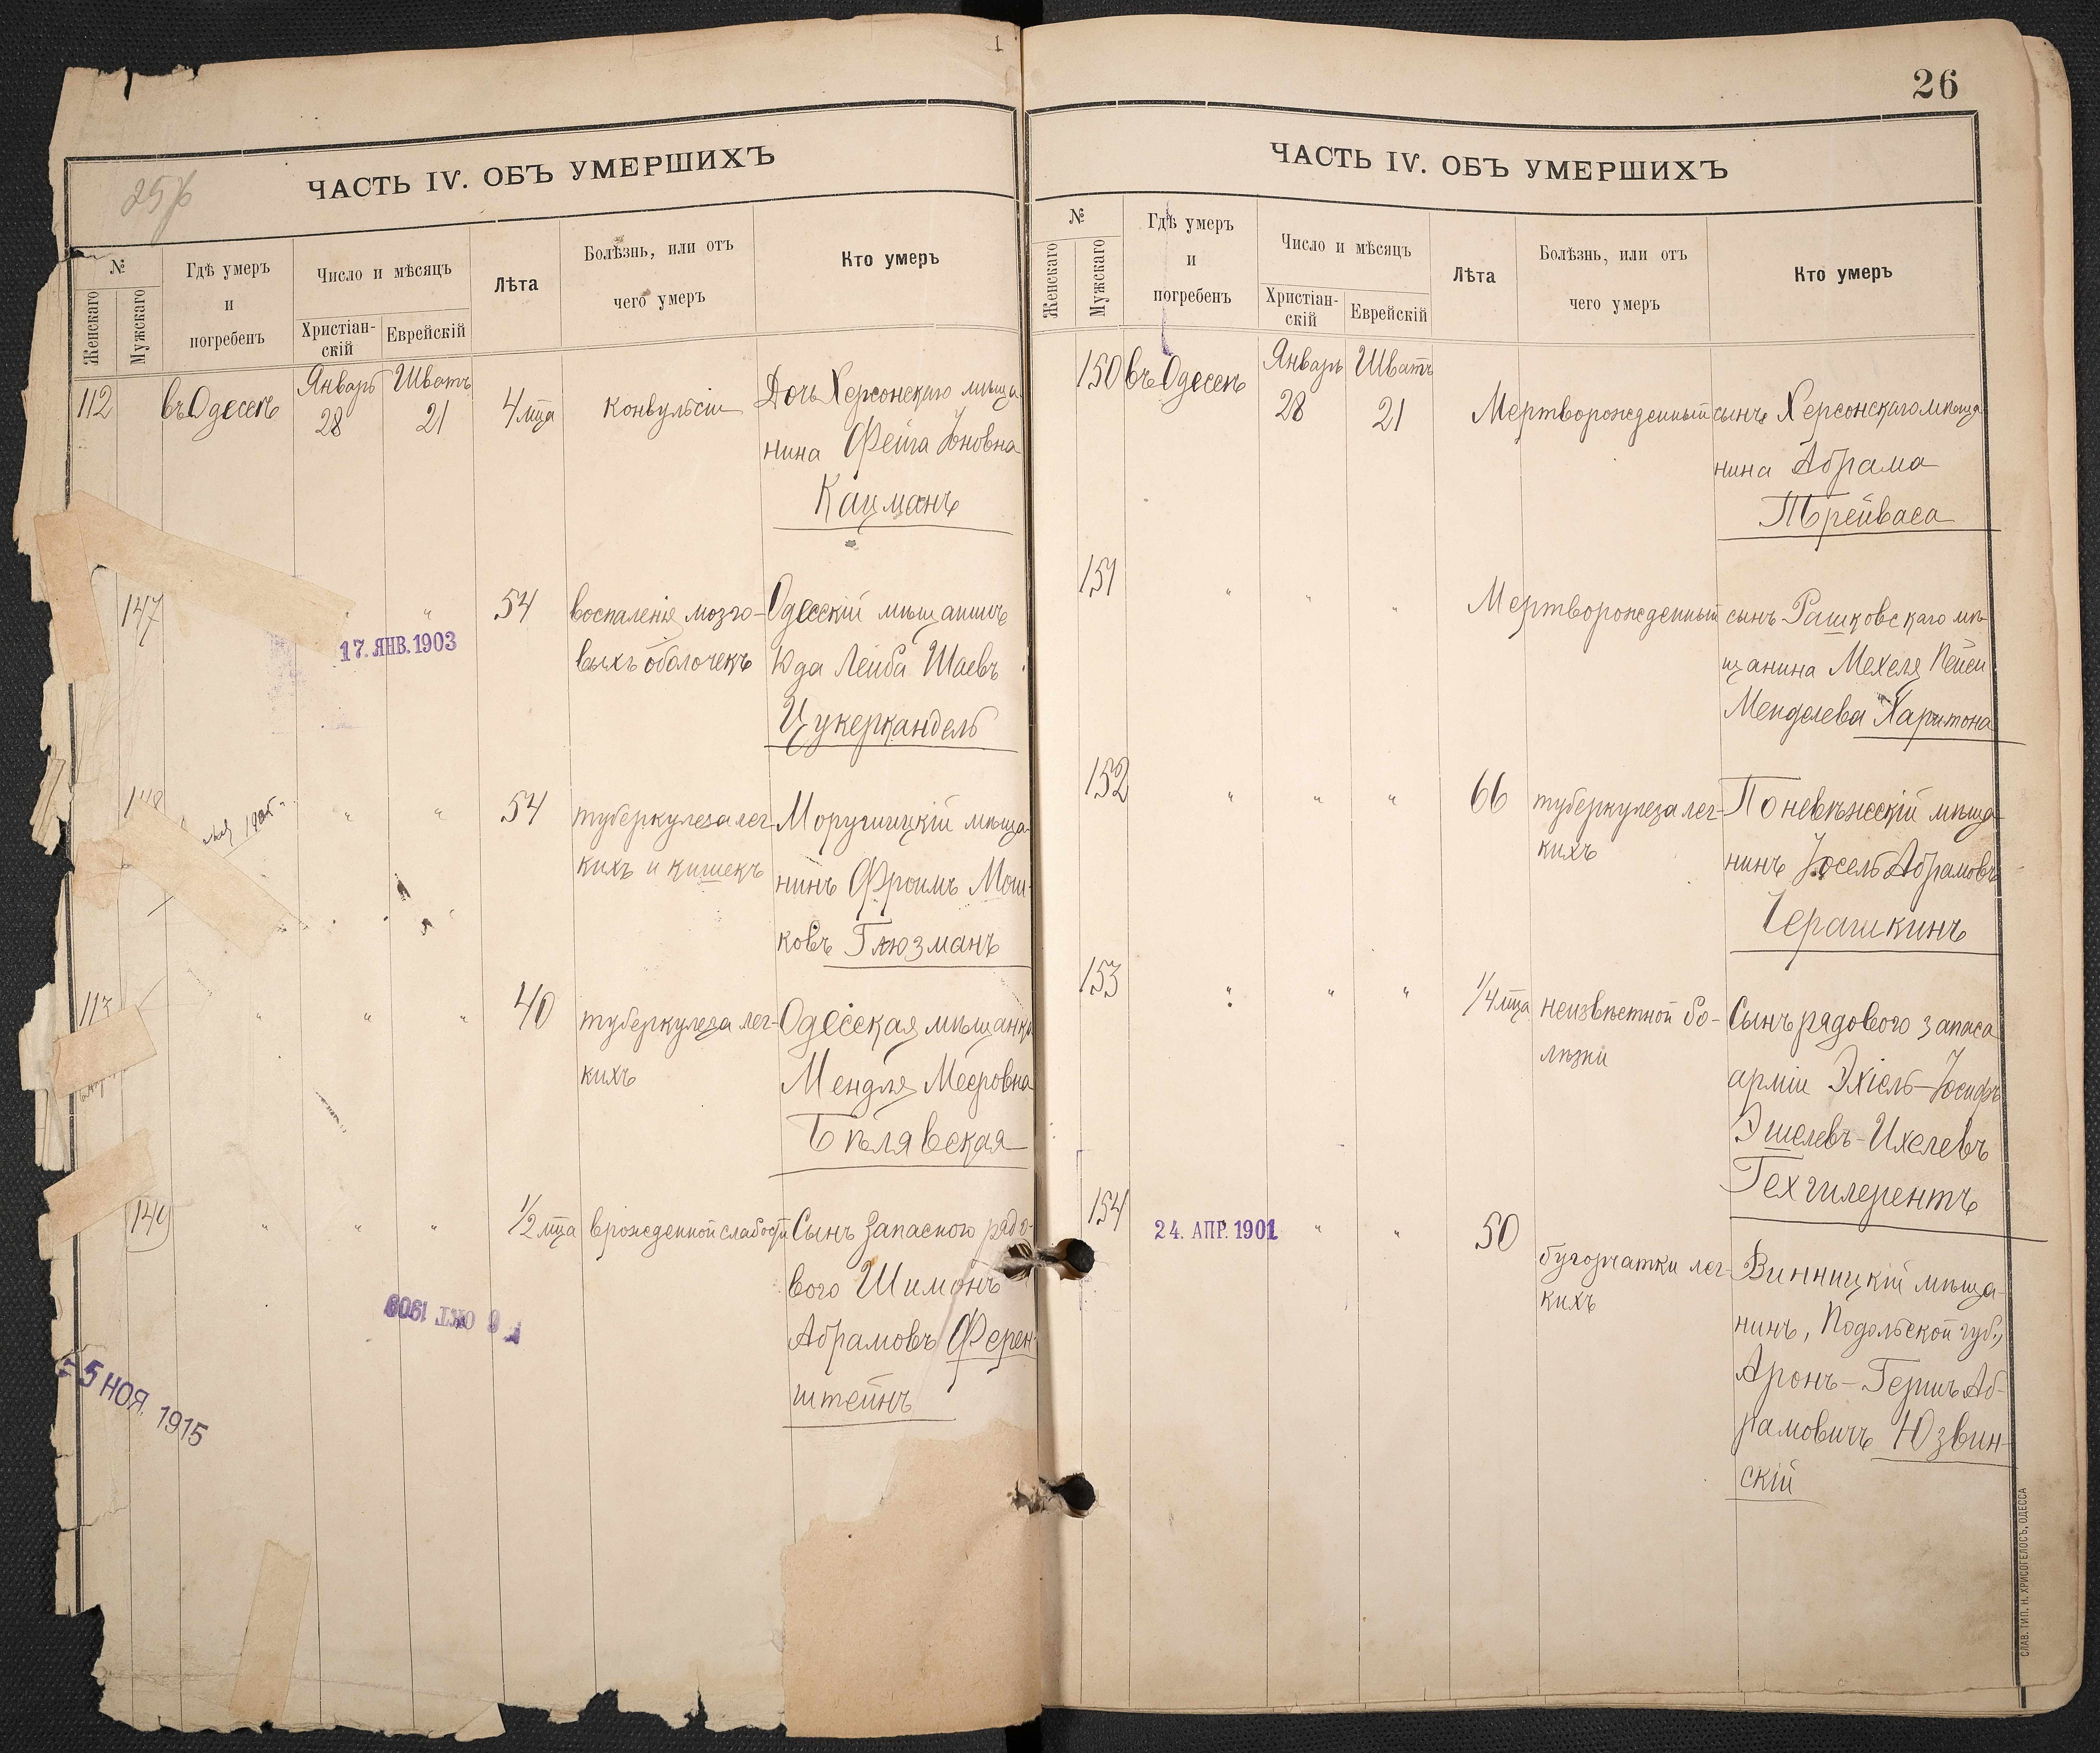 ЧАСТЬ IV. ОБЪ УМЕРШИХЪ
№
Женскаго
Мужскаго
Гдѣ умеръ
и
погребенъ
Число и мѣсяцъ
Христіан-
скій
Еврейскій
Лѣта
Болѣзнь, или отъ
чего умеръ
Кто умеръ
112
въ Одессѣ
Январь
28
Шватъ
21
4 мѣца
конвульсіи
Дочь Херсонскаго мѣща
нина Фейга Іоновна
Кацманъ
147
"
"
17. ЯНВ. 1903
54
воспаленія мозго-
выхъ оболочекъ
Одесскій мѣщанинъ
Юда Лейба Шаевъ
Цукеркандель
148
"
"
54
туберкулеза лег-
кихъ и кишекъ
мѣща-
нинъ Фроимъ Мош-
ковъ Глюзманъ
113
"
"
"
40
туберкулеза лег-
кихъ
Одесская мѣщанка
Мендля Мееровна
Бѣлявская
149
"
"
"
1/2 мѣца
врожденной слабости
Сынъ запасного рядо-
вого Шимонъ
Абрамовъ Ферен-
штейнъ
6 ОКТ. 1909
5 НОЯ. 1915
26
ЧАСТЬ IV. ОБЪ УМЕРШИХЪ
№
Женскаго
Мужскаго
Гдѣ умеръ
и
погребенъ
Число и мѣсяцъ
Христіан-
скій
Еврейскій
Лѣта
Болѣзнь, или отъ
чего умеръ
Кто умеръ
150
въ Одессѣ
Январь
28
Шватъ
21
Мертворожденный сынъ Херсонскаго мѣща
нина Абрама
Трейваса
151
"
"
"
Мертворожденный сынъ Рашковскаго мѣ-
щанина Мехеля Пейси
Менделева Харитона
152
"
"
"
66
туберкулеза лег-
кихъ
Поневѣжскій мѣща-
нинъ Іосель Абрамовъ
Черашкинъ
153
"
"
"
1/4 мѣца
неизвѣстной бо-
лѣзни
Сынъ рядового запаса
арміи Эхіель-Іосифъ
Эшелевъ-Ихелевъ
154
24. АПР. 1901
"
"
50
бугорчатки лег-
кихъ
Винницкій мѣща-
нинъ, Подольской губ.,
Аронъ-Гершъ Аб-
рамовичъ Юзвин-
скій
СЛАВ. ТИП. Н. ХРИСОГЕЛОСЪ, ОДЕССА